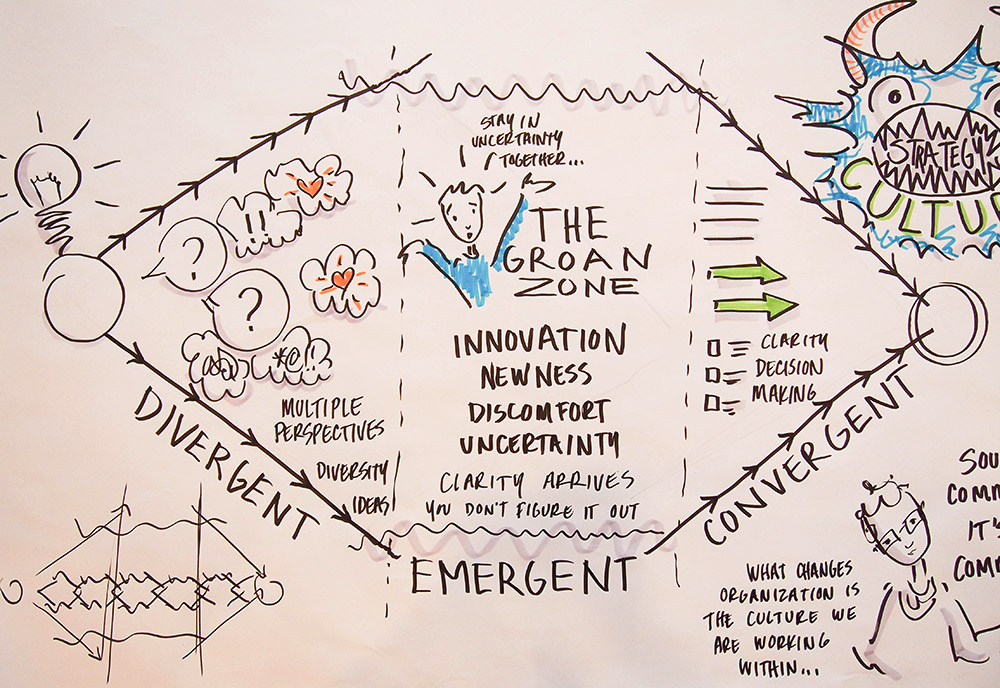 STAY IN
UNCERTAINTY
TOGETHER...
THE
GROAN
ZONE
INNOVATION
NEWNESS
DISCOMFORT
UNCERTAINTY
CLARITY ARRIVES
YOU DON'T FIGURE IT OUT
!!
?
?
*@!!
MULTIPLE
PERSPECTIVES
DIVERSITY
IDEAS
DIVERGENT
EMERGENT
CONVERGENT
CLARITY
DECISION
MAKING
STRATEGY
CULTU
WHAT CHANGES
ORGANIZATION IS
THE CULTURE WE
ARE WORKING
WITHIN...
SOU
COMM
IT'S
COMM